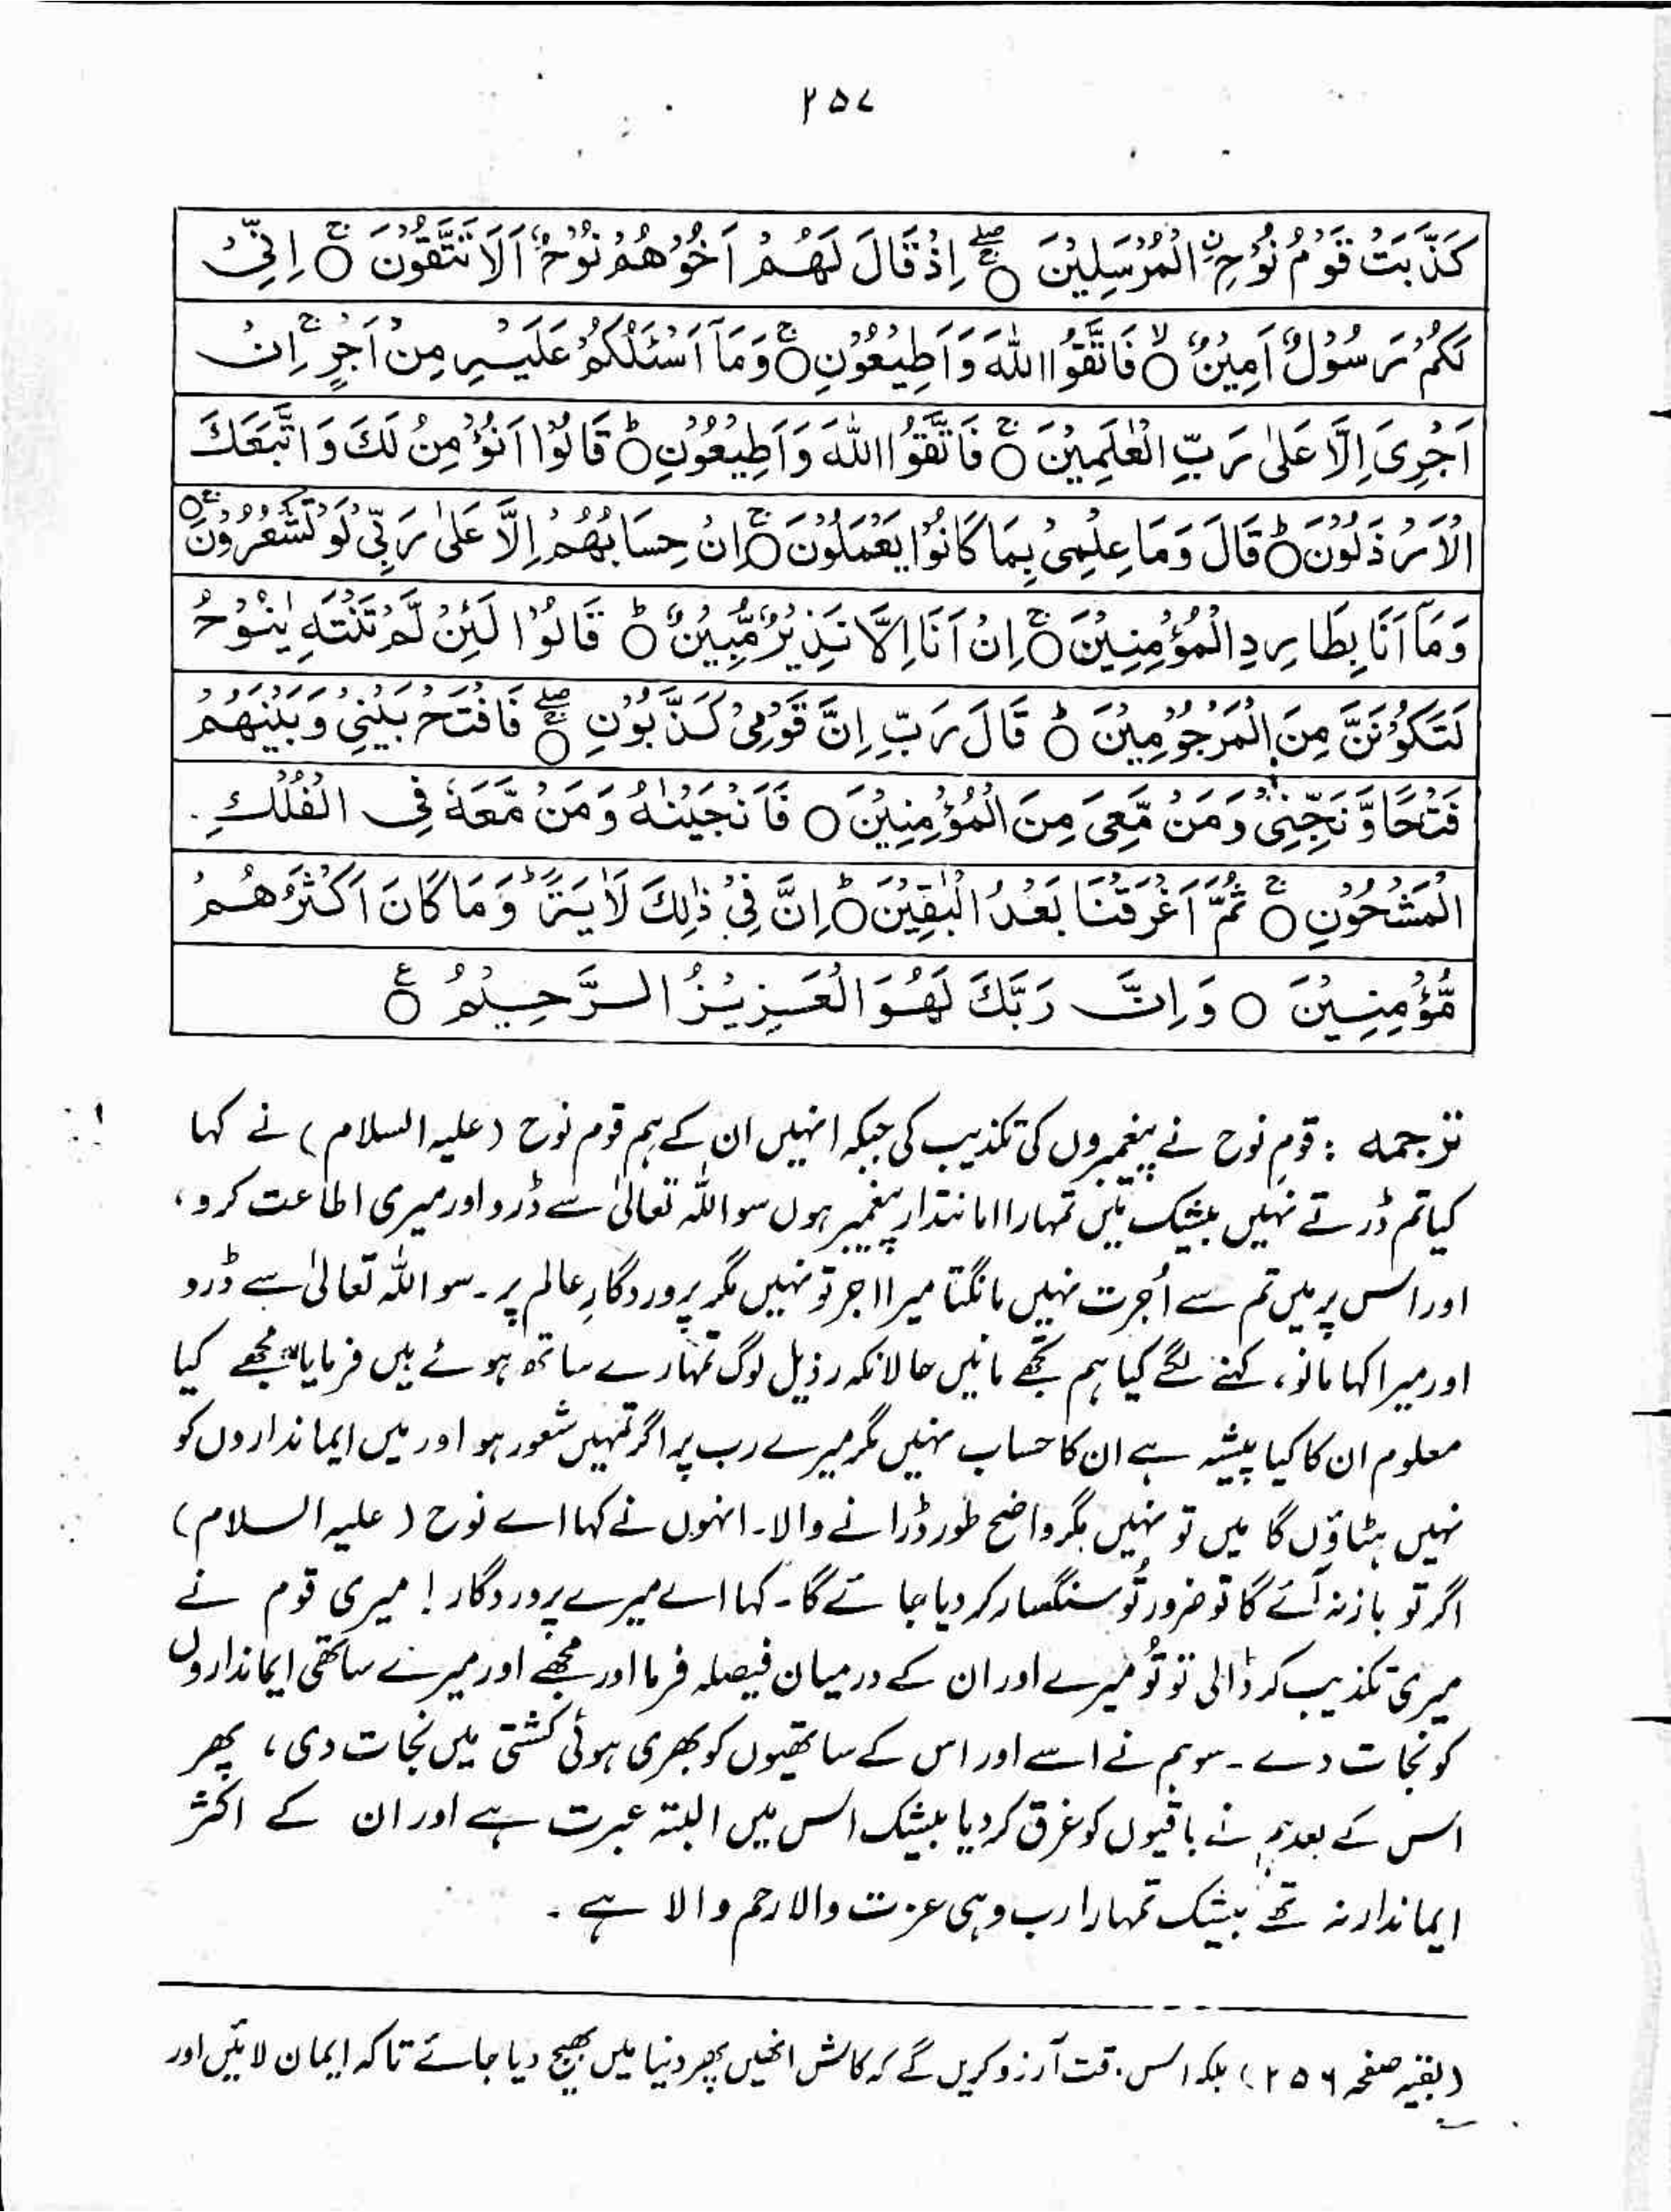 ۲۵۷
كَذَّبَتْ قَوْمُ نُوْحِ ِۨالْمُرْسَلِيْنَ ۝ۚۖ اِذْ قَالَ لَهُمْ اَخُوْهُمْ نُوْحٌ اَلَا تَتَّقُوْنَ ۝ۚ اِنِّيْ
لَكُمْ رَسُوْلٌ اَمِيْنٌ ۝ۙ فَاتَّقُوا اللّٰهَ وَاَطِيْعُوْنِ ۝ۚ وَمَآ اَسْئَلُكُمْ عَلَيْهِ مِنْ اَجْرٍ ۚ اِنْ
اَجْرِىَ اِلَّا عَلٰى رَبِّ الْعٰلَمِيْنَ ۝ۚ فَاتَّقُوا اللّٰهَ وَاَطِيْعُوْنِ ۝ؕ قَالُوْٓا اَنُؤْمِنُ لَكَ وَاتَّبَعَكَ
الْاَرْذَلُوْنَ ۝ؕ قَالَ وَمَا عِلْمِىْ بِمَا كَانُوْا يَعْمَلُوْنَ ۝ۚ اِنْ حِسَابُهُمْ اِلَّا عَلٰى رَبِّىْ لَوْ تَشْعُرُوْنَ ۝ۚ
وَمَآ اَنَا بِطَارِدِ الْمُؤْمِنِيْنَ ۝ۚ اِنْ اَنَا اِلَّا نَذِيْرٌ مُّبِيْنٌ ۝ؕ قَالُوْا لَئِنْ لَّمْ تَنْتَهِ يٰنُوْحُ
لَتَكُوْنَنَّ مِنَ الْمَرْجُوْمِيْنَ ۝ؕ قَالَ رَبِّ اِنَّ قَوْمِىْ كَذَّبُوْنِ ۝ۚۖ فَافْتَحْ بَيْنِىْ وَبَيْنَهُمْ
فَتْحًا وَّنَجِّنِىْ وَمَنْ مَّعِىَ مِنَ الْمُؤْمِنِيْنَ ۝ فَاَنْجَيْنٰهُ وَمَنْ مَّعَهٗ فِى الْفُلْكِ
الْمَشْحُوْنِ ۝ۚ ثُمَّ اَغْرَقْنَا بَعْدُ الْبٰقِيْنَ ۝ؕ اِنَّ فِيْ ذٰلِكَ لَاٰيَةً ؕ وَمَا كَانَ اَكْثَرُهُمْ
مُّؤْمِنِيْنَ ۝ وَاِنَّ رَبَّكَ لَهُوَ الْعَزِيْزُ الرَّحِيْمُ ۝ع
ترجمہ : قومِ نوح نے پیغمبروں کی تکذیب کی جبکہ انہیں ان کے ہم قوم نوح (علیہ السلام) نے کہا
کیا تم ڈرتے نہیں بیشک میں تمہارا امانتدار پیغمبر ہوں سو اللہ تعالیٰ سے ڈرو اور میری اطاعت کرو،
اور اس پر میں تم سے اُجرت نہیں مانگتا میرا اجر تو نہیں مگر پروردگارِ عالم پر۔ سو اللہ تعالیٰ سے ڈرو
اور میرا کہا مانو، کہنے لگے کیا ہم تجھے مانیں حالانکہ رذیل لوگ تمہارے ساتھ ہوئے ہیں فرمایا مجھے کیا
معلوم ان کا کیا پیشہ ہے ان کا حساب نہیں مگر میرے رب پر اگر تمہیں شعور ہو اور میں ایمانداروں کو
نہیں ہٹاؤں گا میں تو نہیں مگر واضح طور ڈرانے والا۔ انہوں نے کہا اے نوح (علیہ السلام)
اگر تو باز نہ آئے گا تو ضرور تُو سنگسار کر دیا جائے گا۔ کہا اے میرے پروردگار! میری قوم نے
میری تکذیب کر ڈالی تو تُو میرے اور ان کے درمیان فیصلہ فرما اور مجھے اور میرے ساتھی ایمانداروں
کو نجات دے۔ سو ہم نے اسے اور اس کے ساتھیوں کو بھری ہوئی کشتی میں نجات دی، پھر
اس کے بعد ہم نے باقیوں کو غرق کر دیا بیشک اس میں البتہ عبرت ہے اور ان کے اکثر
ایماندار نہ تھے بیشک تمہارا رب وہی عزت والا رحم والا ہے۔
(بقیہ صفحہ ۲۵۶) بلکہ اس وقت آرزو کریں گے کہ کاش انھیں پھر دنیا میں بھیج دیا جائے تاکہ ایمان لائیں اور